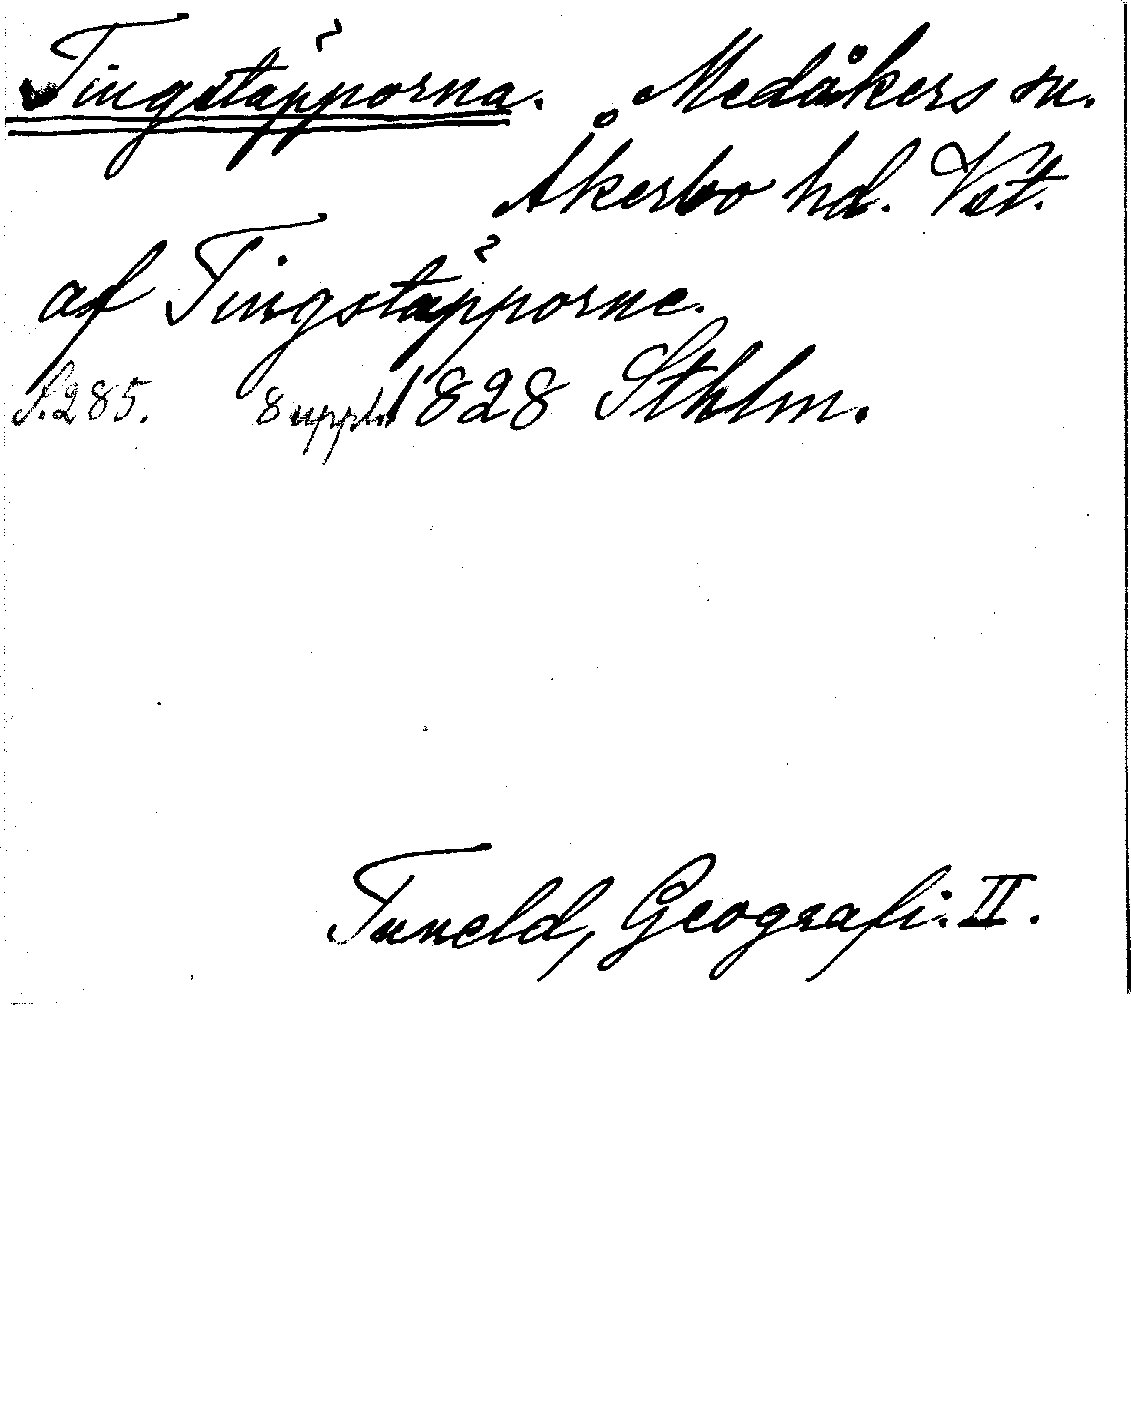 Tingstäpporna. Medåkers sn.
Åkerbo hd. Vst.
af Tingstäpporne.
S. 285. 8 uppl. 1828 Sthlm.
Tuneld, Geografi. II.